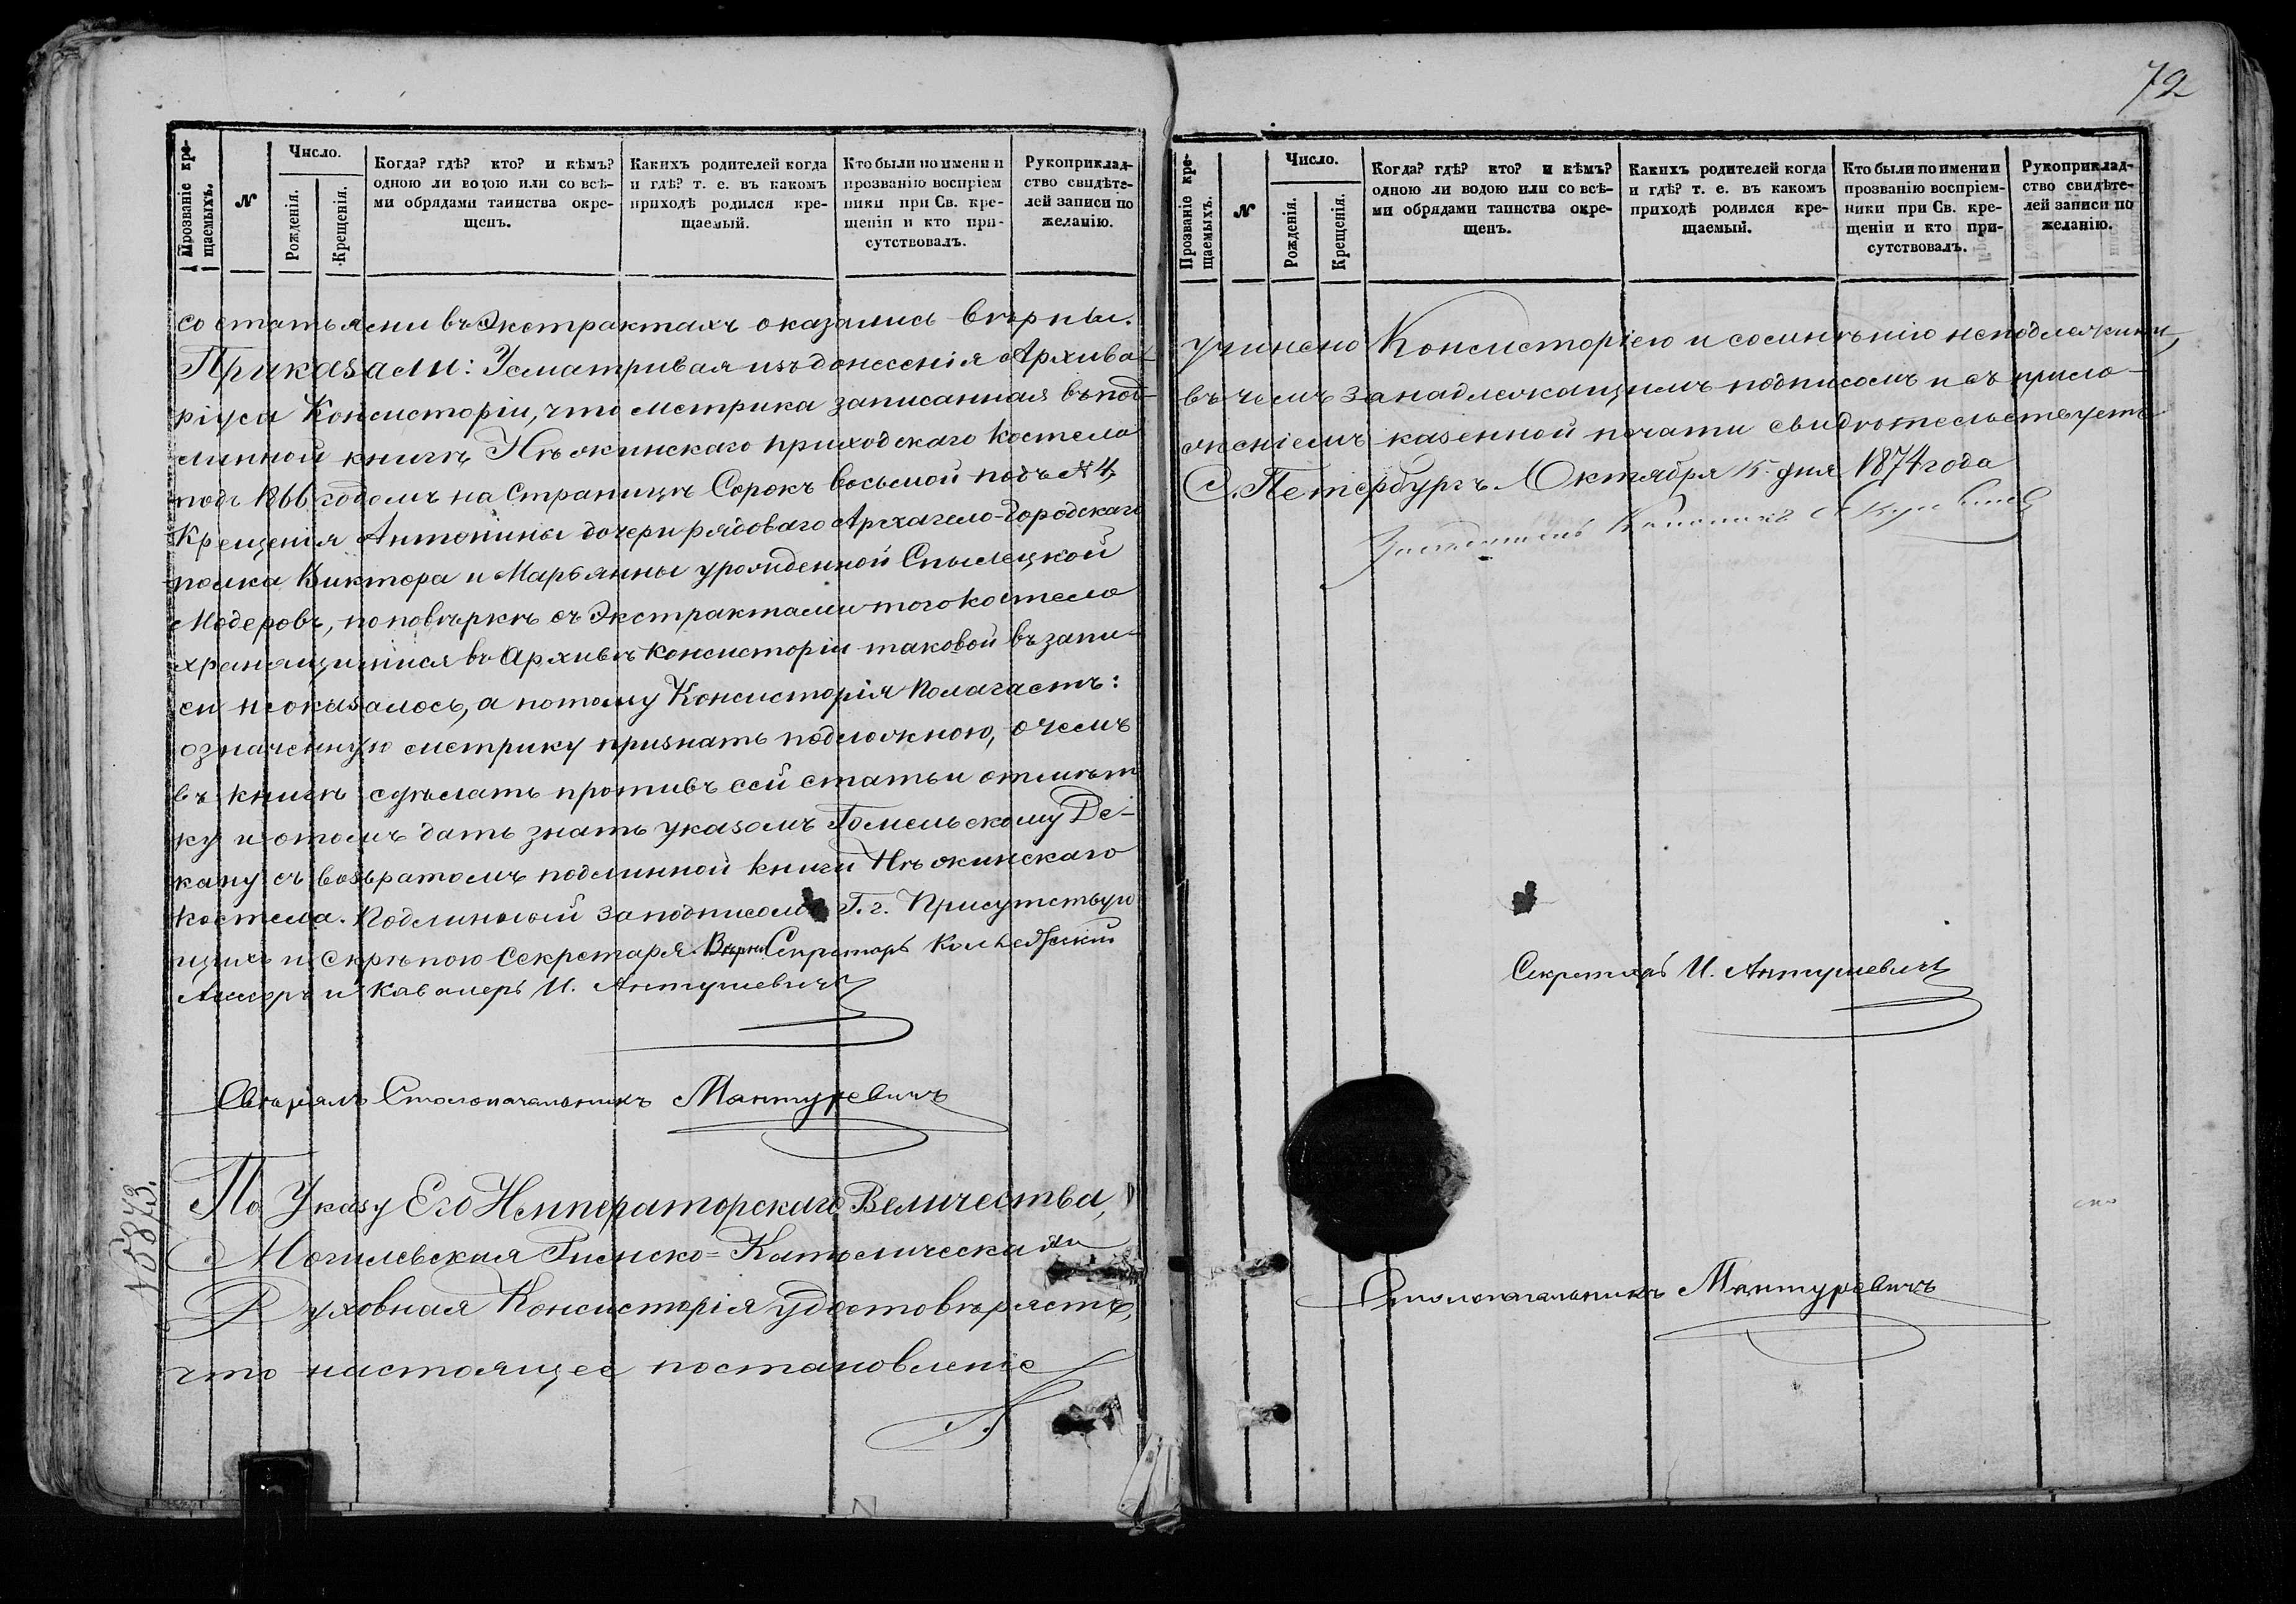 72
Прозваніе кре-
щаемыхъ.
N
Число.
Рожденія.
Крещенія.
Когда? гдѣ? кто? и кѣмъ?
одною ли водою или со всѣ-
ми обрядами таинства окре-
щенъ.
Какихъ родителей когда
и гдѣ? т. е. въ какомъ
приходѣ родился кре-
щаемый.
Кто были по имени и
прозванію воспріем
ники при Св. кре-
щеніи и кто при-
сутствовалъ.
Рукоприклад-
ство свидѣте-
лей записи по
желанію.
со статьями въ Экстрактахъ оказались вѣрны.
Приказали: Усматривая изъ донесенія Архива-
ріуса Консисторіи, что метрика записанная въ под-
линной книгѣ Нѣжинскаго приходскаго костела
подъ 1866 годомъ на страницѣ Сорокъ восьмой подъ N 4,
Крещенія Антонины дочери рядоваго Архагело-Городскаго
полка Виктора и Марьянны урожденной Спылецкой
Модеровъ, по повѣркѣ съ Экстрактами того костела
хранящимися въ Архивѣ Консисторіи таковой въ запи-
си не оказалось, а потому Консисторія Полагаетъ:
означенную метрику признать подложною, о чемъ
въ книгѣ сдѣлать противъ сей статьи отмѣт
ку и о томъ дать знать указомъ Гомельскому Де-
кану съ возвратомъ подлинной книги Нѣжинскаго
костела. Подлинный за подписомъ Г.г. Присутствую
щихъ и скрѣпою Секретаря. Вѣрно: Секретарь Коллежскій
Ассесоръ и Кавалеръ И. Антушевичъ
Свѣрялъ Столоначальникъ Мантуревичъ
N 5873.
По Указу Его Императорскаго Величества,
Могилевская Римско=Католическая
Духовная Консисторія удостовѣряетъ,
что настоящее постановленіе
Прозваніе кре-
щаемыхъ.
N
Число.
Рожденія.
Крещенія.
Когда? гдѣ? кто? и кѣмъ?
одною ли водою или со всѣ-
ми обрядами таинства окре-
щенъ.
Какихъ родителей когда
и гдѣ? т. е. въ какомъ
приходѣ родился кре-
щаемый.
Кто были по имени и
прозванію воспріем-
ники при Св. кре-
щеніи и кто при-
сутствовалъ.
Рукоприклад-
ство свидѣте-
лей записи по
желанію.
учинено Консисторіею и сомнѣнію неподлежитъ,
въ чемъ за надлежащимъ подписомъ и съ прило-
женіемъ казенной печати свидѣтельствуетъ
С. Петербургъ. Октября 15 дня 1874 года
Секретарь И. Антушевичъ
Столоначальникъ Мантуревичъ